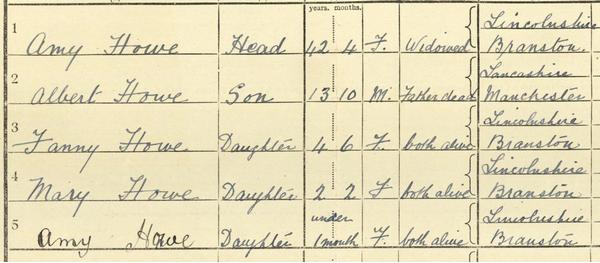 years. months.
Lincolnshire
1
Amy Howe Head 42 4 F. Widowed Branston.
Lancashire
2
Albert Howe Son 13 10 M. Father dead Manchester
Lincolnshire
3
Fanny Howe Daughter 4 6 F. both alive Branston
Lincolnshire
4
Mary Howe Daughter 2 2 F both alive Branston
under Lincolnshire
5
Amy Howe Daughter 1 month F. both alive Branston